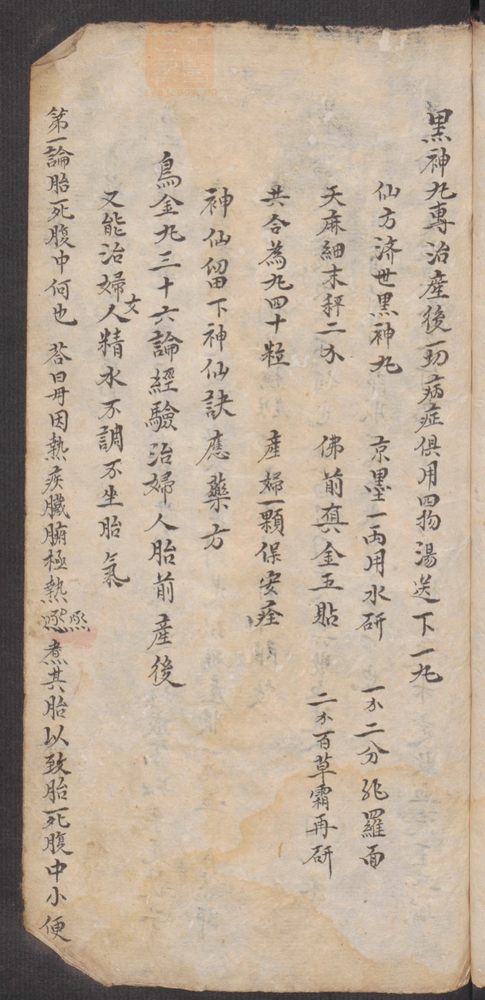 黑神丸專治產後一切病症俱用四物湯送下一丸
仙方济世黑神丸 京墨一両用水研 一个二分飛羅面
天麻細末秤二个 佛前真金五貼 二个百草霜再研
共合為丸四十粒 產婦一顆保安痊
神仙留下神仙訣應藥方
烏金丸三十六論經驗治婦人胎前產後
又能治婦人精水不調不坐胎氣
第一論胎死腹中何也 荅曰毋因熱疾臟腑極熱熬煮其胎以致胎死腹中小便